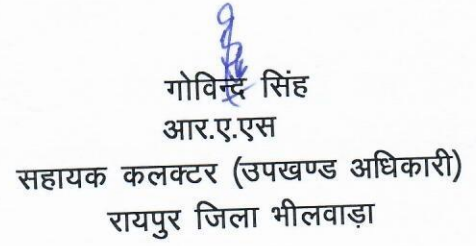 गोविन्द्र सिंह
आर.ए.एस
सहायक कलक्टर (उपखण्ड अधिकारी)
रायपुर जिला भीलवाड़ा